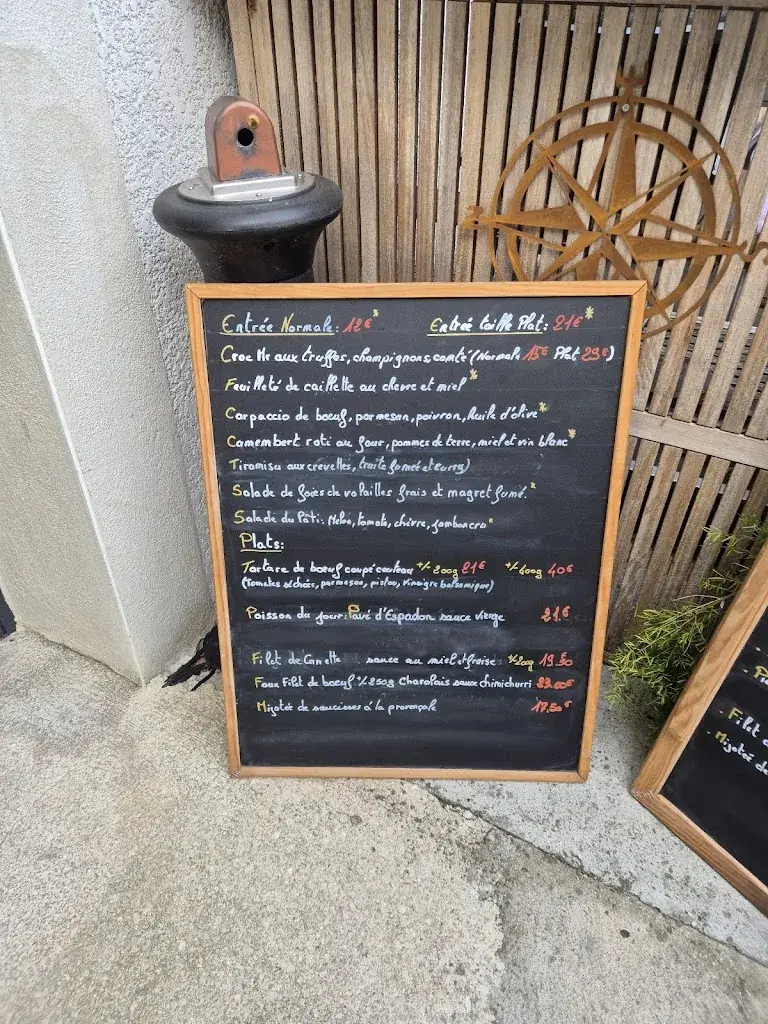 Entrée Normale: 12€* Entrée taille Plat: 21€*
Croc Mr aux truffes, champignons, comté (Normale 15€ Plat 23€)
Feuilleté de caillette au chevre et miel*
Carpaccio de boeuf, parmesan, poivron, huile d'olive*
Camembert roti au four, pommes de terre, miel et vin blanc*
Tiramisu aux crevettes, truite fumée et curry)
Salade de foies de volailles frais et magret fumé.*
Salade du Pâti: Melon, tomate, chèvre, jambon cru*
Plats:
Tartare de boeuf coupé couteau +/- 200g 21€ +/- 400g 40€
(Tomates séchées, parmesan, pistou, vinaigre balsamique)
Poisson du jour: Pavé d'Espadon sauce vierge 21.€
Filet de Canette sauce au miel et fraise +/- 200g 19.50
Faux Filet de boeuf +/- 250g Charolais sauce chimichurri 23.00€
Mijotée de saucisses à la provençale 17,50€
. Filet
. Mijotée de